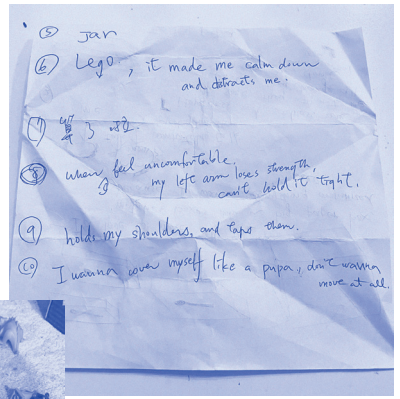 ⑤ Jar
⑥ Lego, it made me calm down
and distracts me.
⑦
⑧ when feel uncomfortable.
my left arm loses strength,
can't hold it tight.
⑨ holds my shoulders, and taps them.
⑩ I wanna cover myself like a pupa, don't wanna
move at all